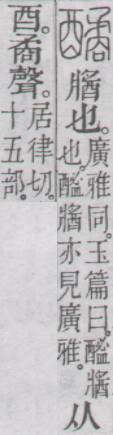 醬也。廣雅同。玉篇曰。醘醬也。醘醬亦見廣雅。从
酉。矞聲。居律切。十五部。